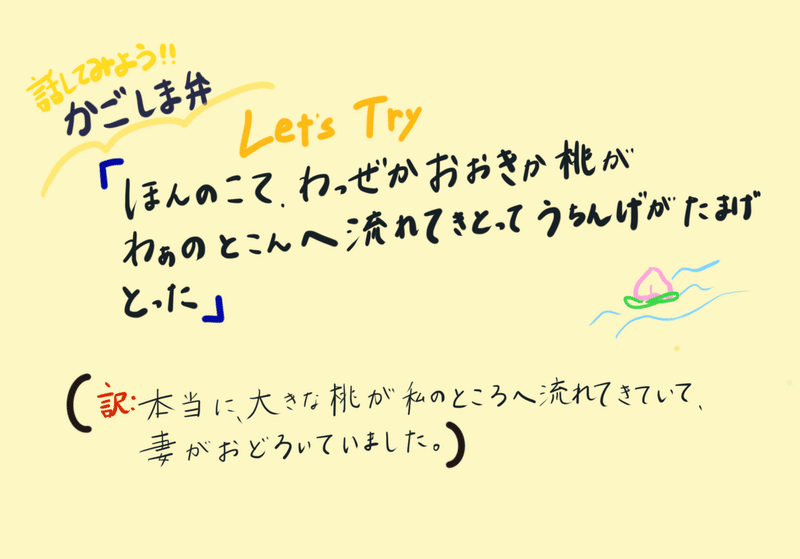 話してみよう!!
かごしま弁
Let's Try
「ほんのこて、わっぜかおおきか桃が
わぁのとこんへ流れてきとってうちんげがたまげ
とった」
(訳:本当に、大きな桃が私のところへ流れてきていて、
妻がおどろいていました。)